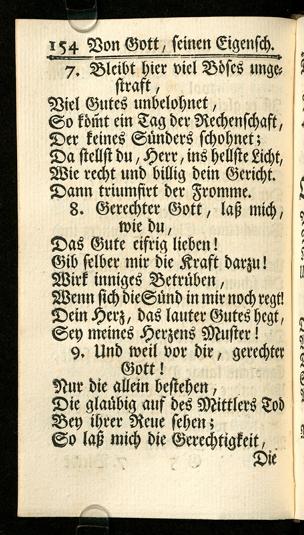 154 Von Gott, seinen Eigensch.
7. Bleibt hier viel Böses unge-
straft,
Viel Gutes unbelohnet,
So kom̄t ein Tag der Rechenschaft,
Der keines Sünders schohnet;
Da stellst du, Herr, ins hellste Licht,
Wie recht und billig dein Gericht.
Dann triumfirt der Fromme.
8. Gerechter Gott, laß mich,
wie du,
Das Gute eifrig lieben!
Gib selber mir die Kraft darzu!
Wirk inniges Betrüben,
Wenn sich die Sünd in mir noch regt!
Dein Herz, das lauter Gutes hegt,
Sey meines Herzens Muster!
9. Und weil vor dir, gerechter
Gott!
Nur die allein bestehen,
Die glaübig auf des Mittlers Tod
Bey ihrer Reue sehen;
So laß mich die Gerechtigkeit,
Die